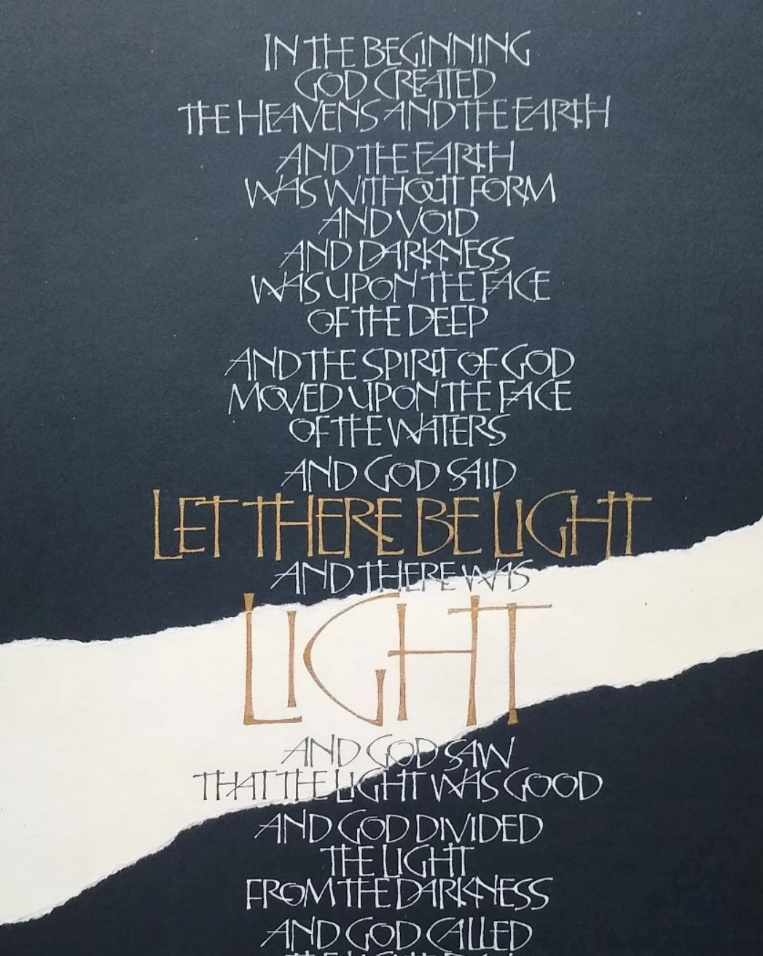 IN THE BEGINNING
GOD CREATED
THE HEAVENS AND THE EARTH
AND THE EARTH
WAS WITHOUT FORM
AND VOID
AND DARKNESS
WAS UPON THE FACE
OF THE DEEP
AND THE SPIRIT OF GOD
MOVED UPON THE FACE
OF THE WATERS
AND GOD SAID
LET THERE BE LIGHT
AND THERE WAS
LIGHT
AND GOD SAW
THAT THE LIGHT WAS GOOD
AND GOD DIVIDED
THE LIGHT
FROM THE DARKNESS
AND GOD CALLED